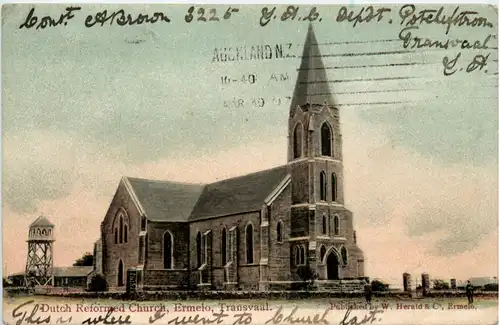 Const A Brown 3225 S.A.C. Depot. Potchefstroom
Transvaal
S.A.
AUCKLAND N.Z
10-40 AM
MAR 30
Dutch Reformed Church, Ermelo, Transvaal.
Published by W. Herald & Co., Ermelo.
This is where I went to Church last.